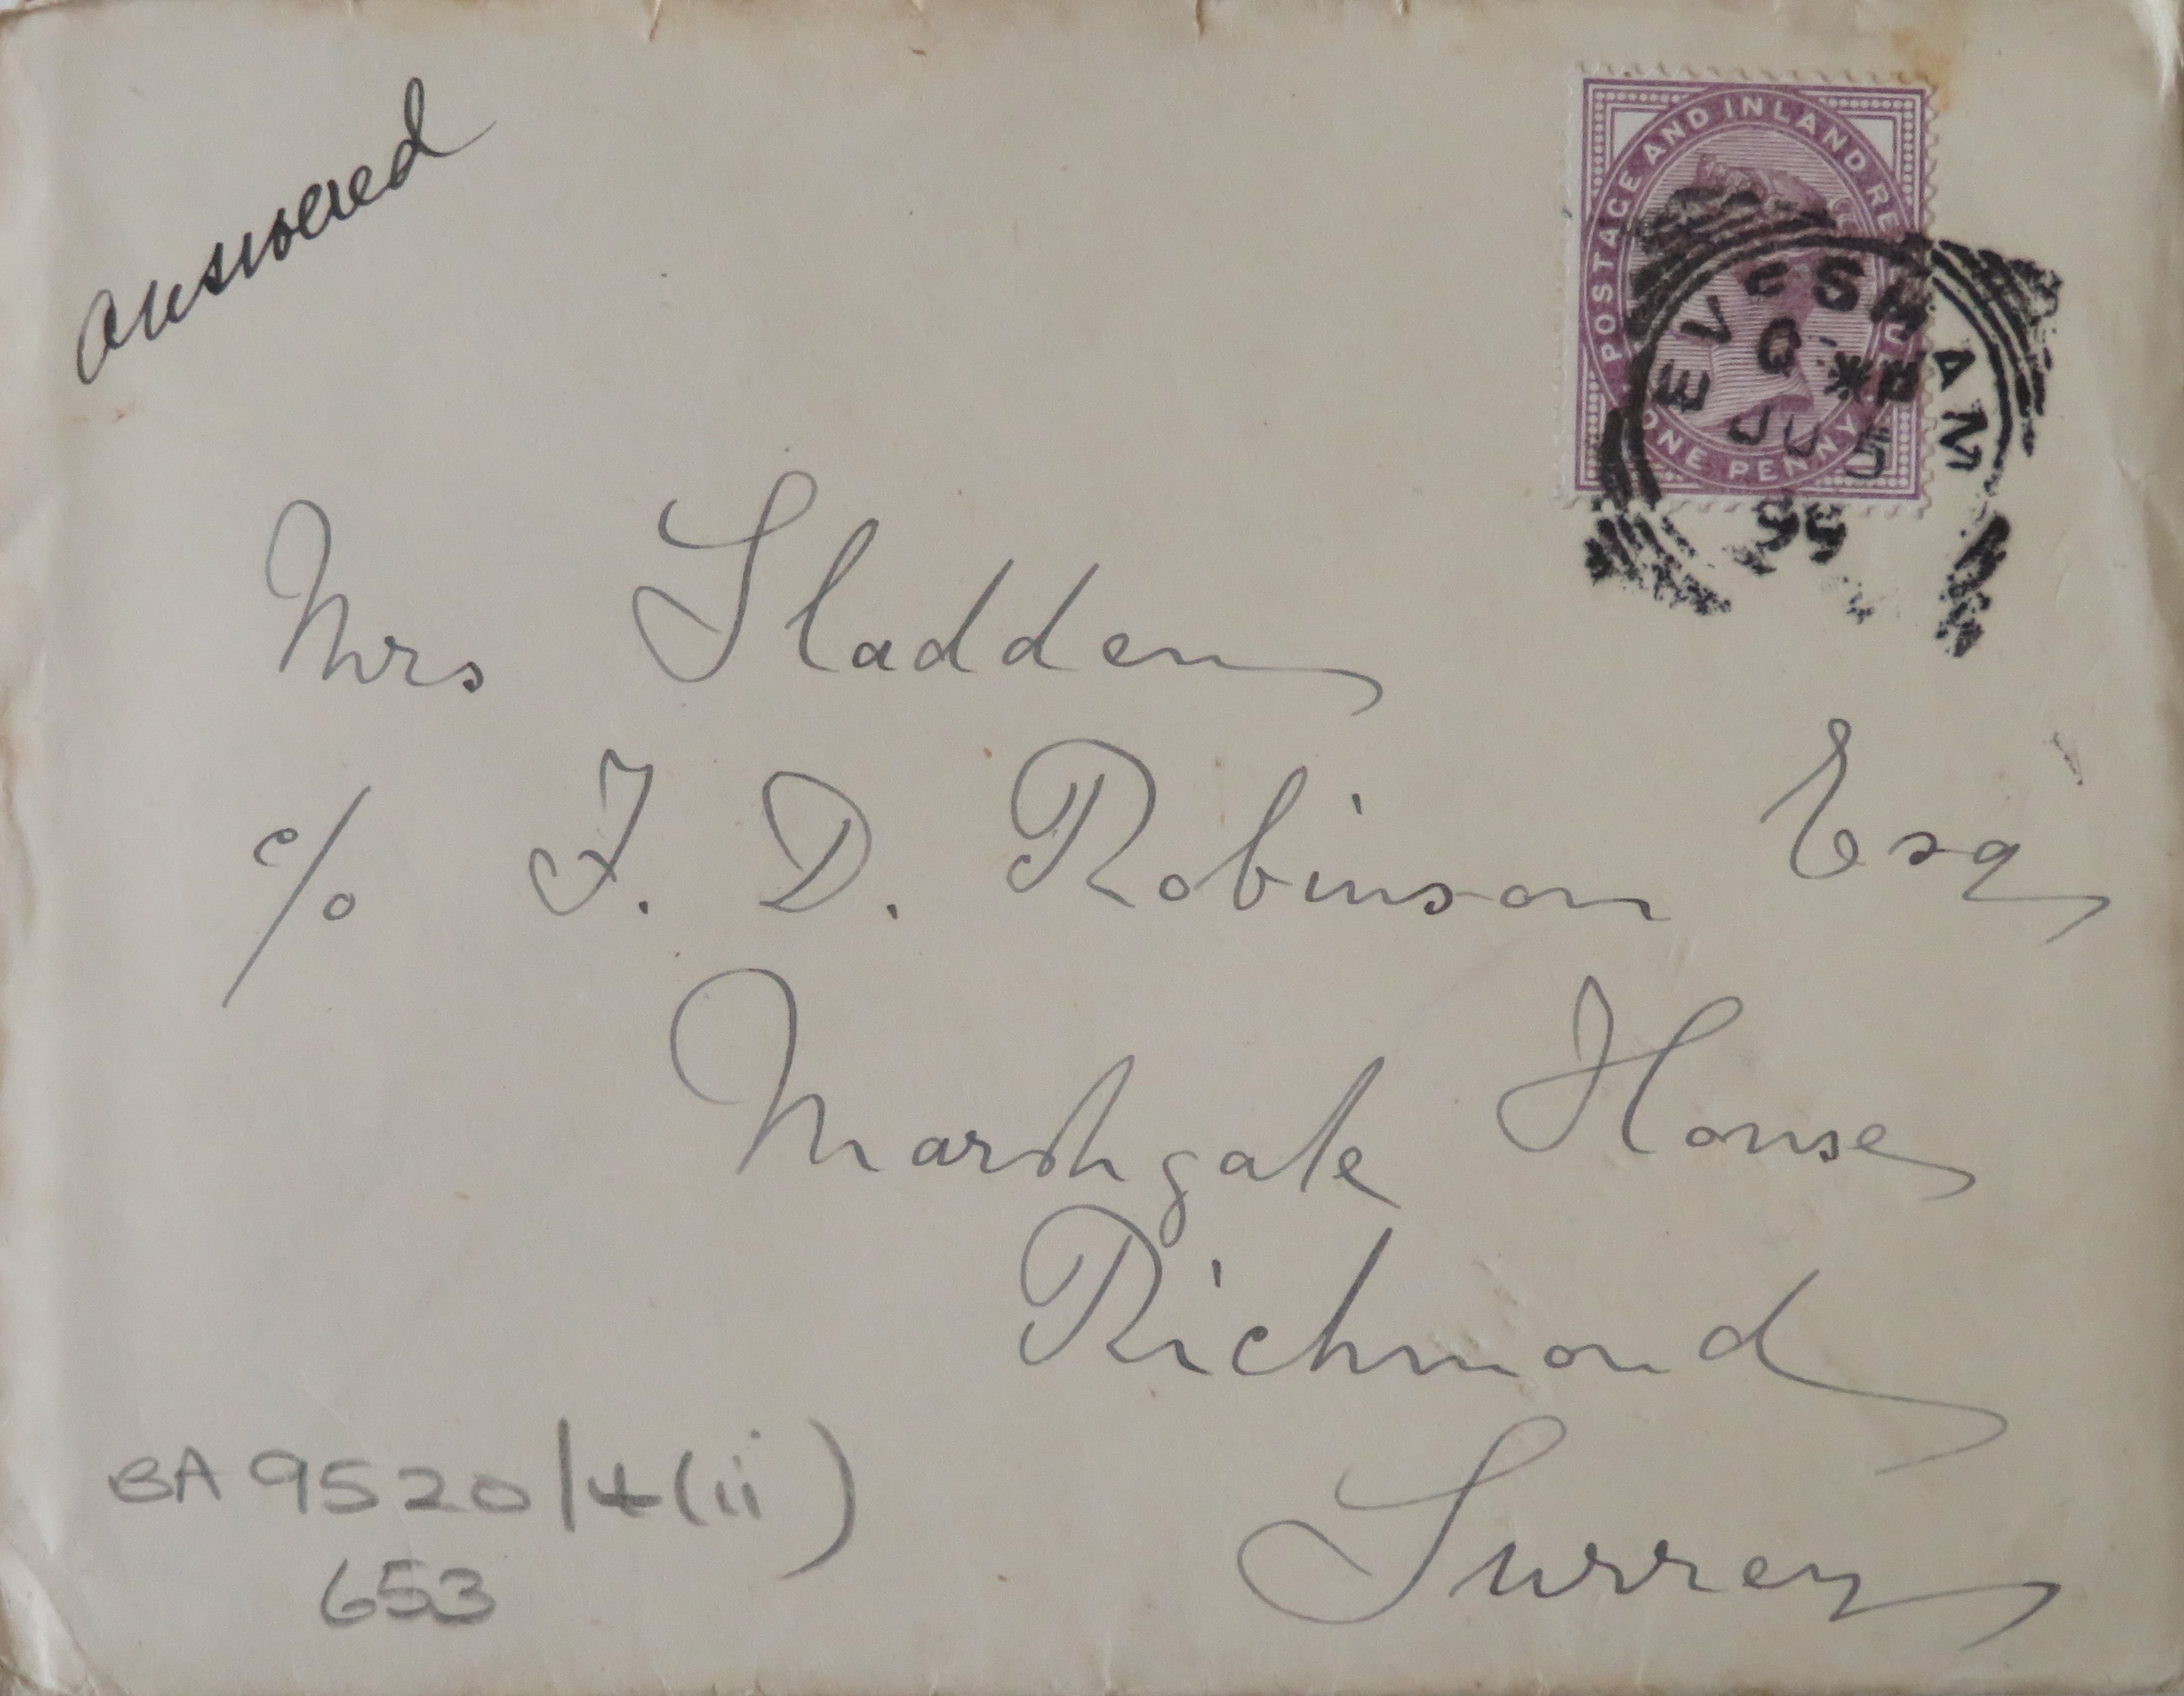 answered
POSTAGE AND INLAND RE
ONE PENNY
EVESHAM
JU 5
99
Mrs Sladden
c/o F. D. Robinson Esq
Marshgate House
Richmond
Surrey
BA 9520/4(ii)
653